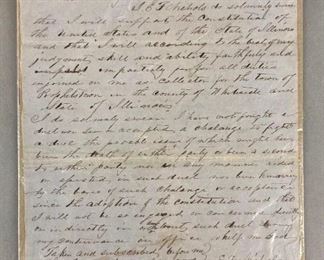 I, E. F. Nichols do solemnly swear
that I will support the Constitution of
the United States and of the State of Illinois
and that I will according to the best of my
judgment skill and ability, faithfully and
impartialy perform all duties
enjoined on me as Collector for the town of
Prophetstown in the County of Whiteside and
State of Illinois
I do solemnly swear I have not fought a
duel nor sent or accepted a chalange to fight
a duel the posible issue of which might have
been the death of either party or been a second
to either party nor in any manner aided
or assisted in such duel nor been knowing
to the bearer of such chalange or acceptance
since the adoption of the constitution and that
I will not be so engaged or concerned directly
or indirectly in or about any such duel during
my continuance in office so help me God
Taken and subscribed before me